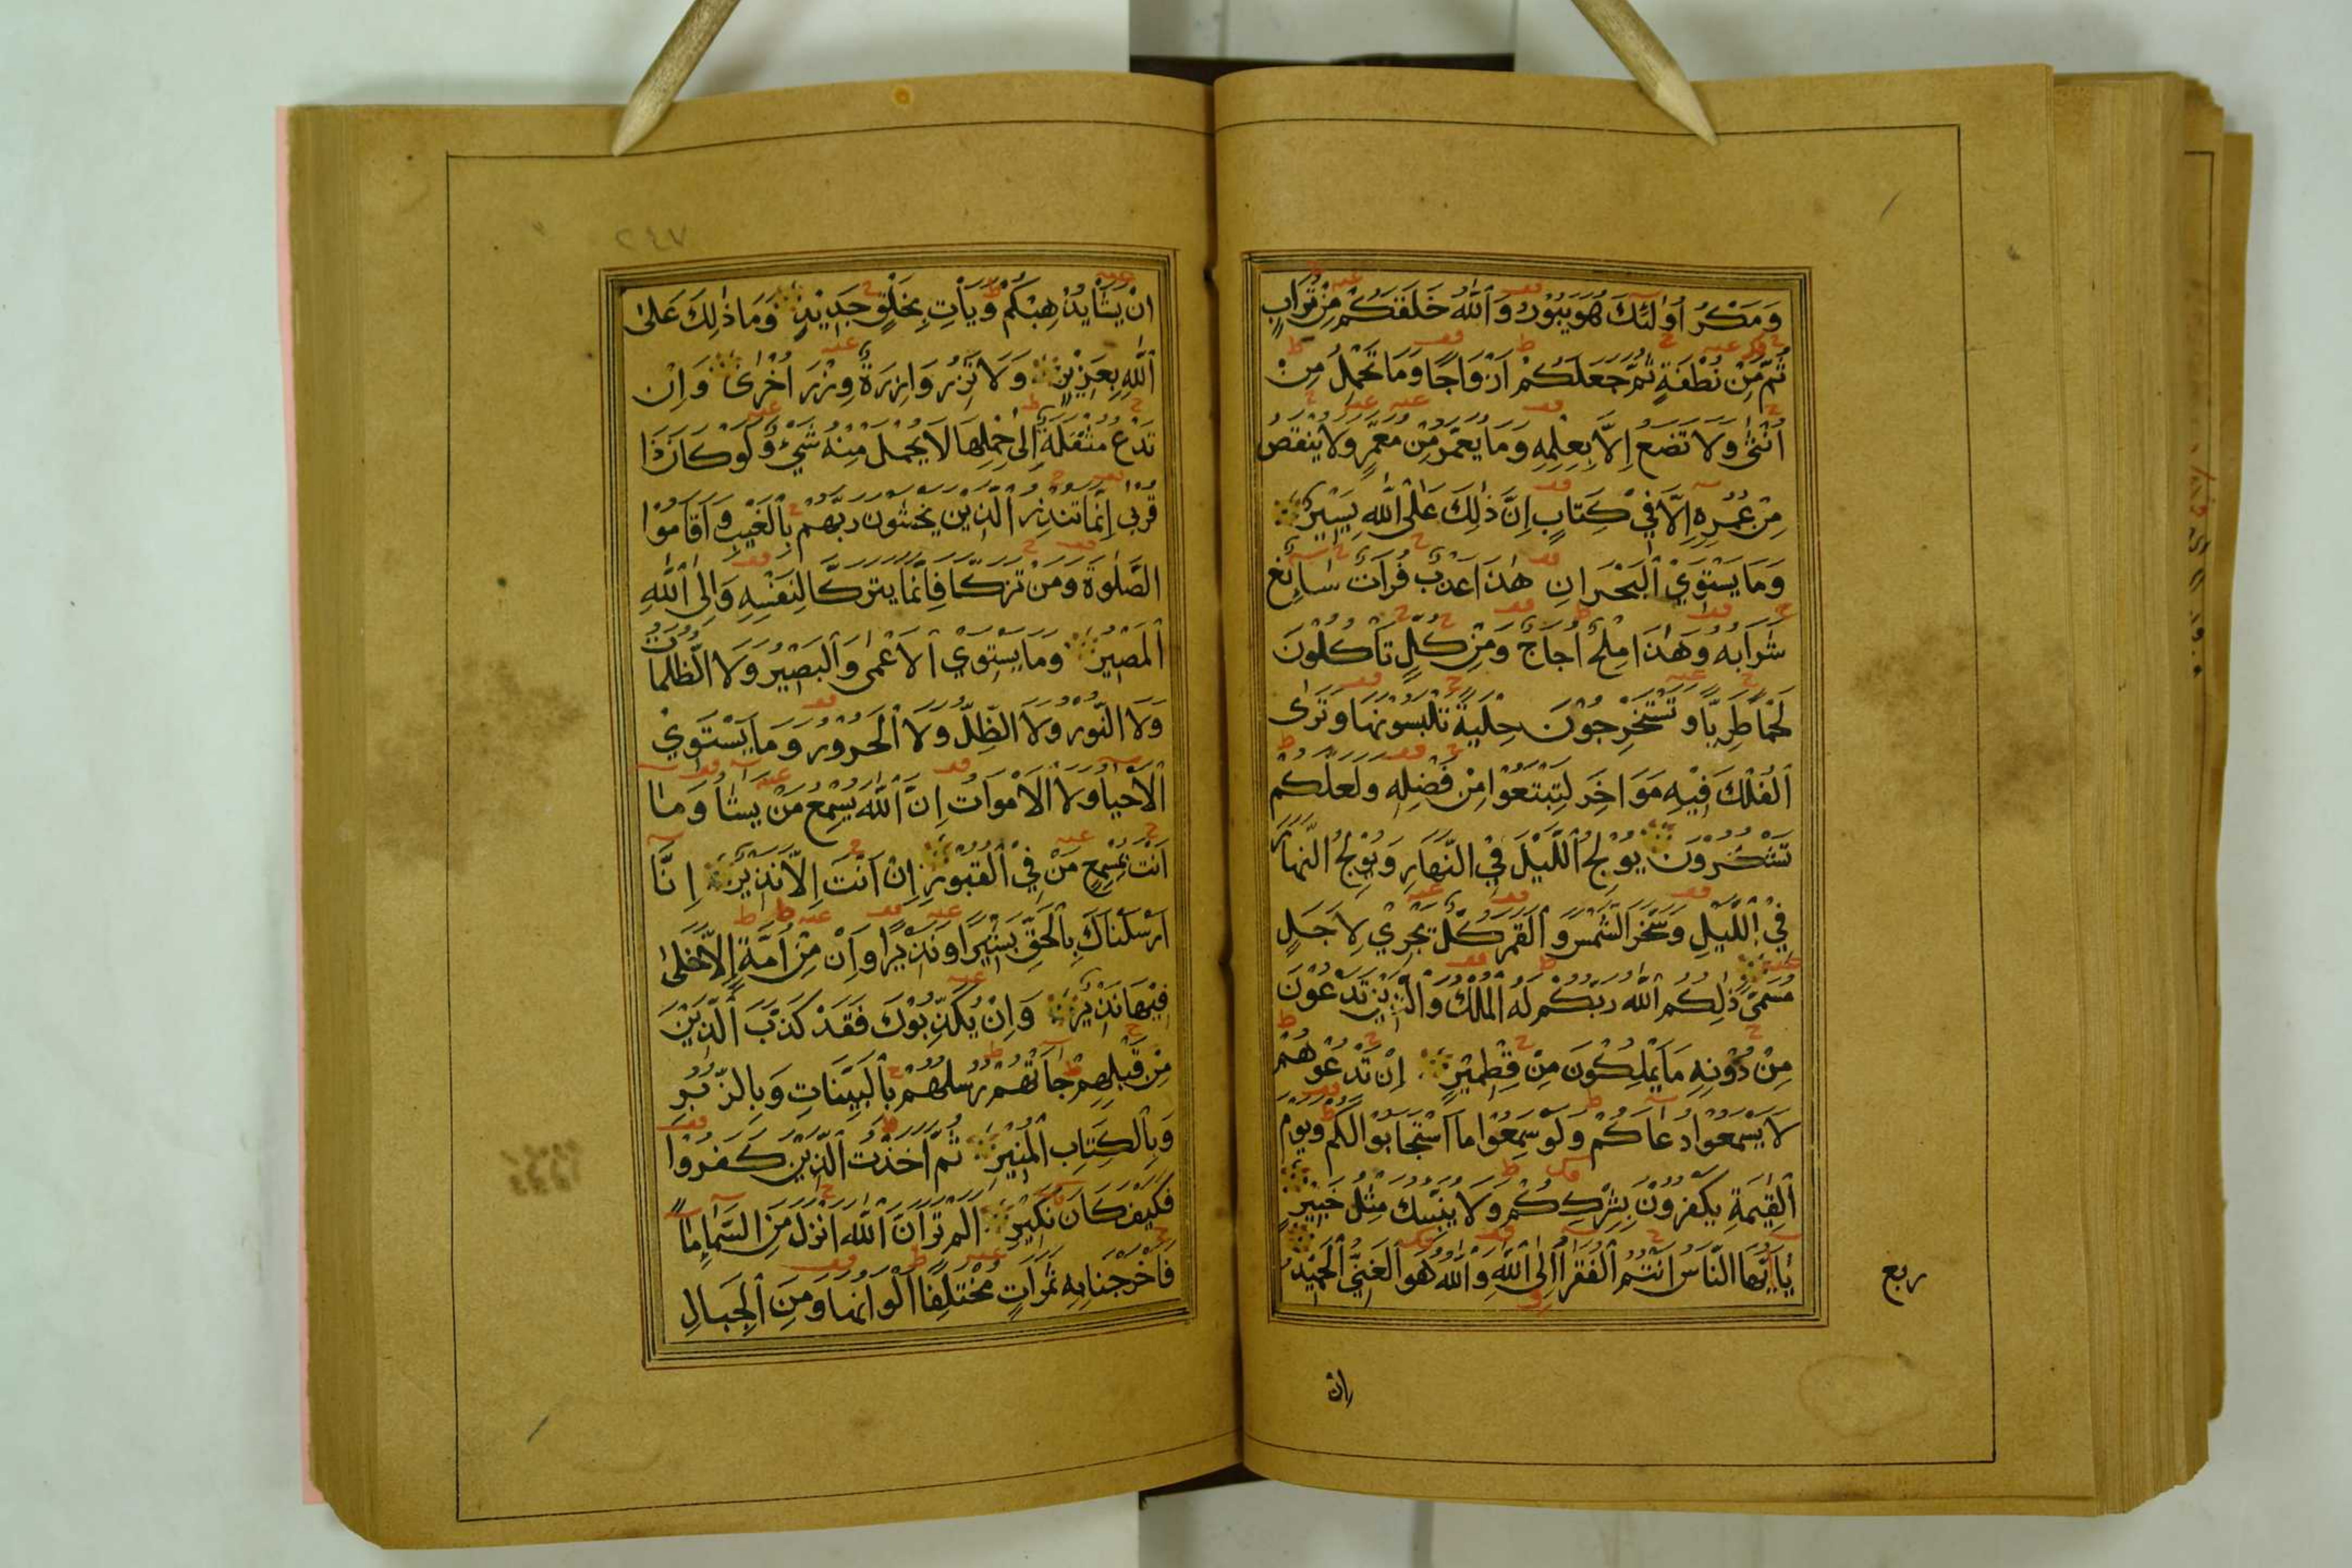 وَمَكْرُ أُولَٰئِكَ هُوَ يَبُورُ وَٱللَّهُ خَلَقَكُمْ مِنْ تُرَابٍ
ثُمَّ مِنْ نُطْفَةٍ ثُمَّ جَعَلَكُمْ أَزْوَاجًا وَمَا تَحْمِلُ مِنْ
أُنْثَىٰ وَلَا تَضَعُ إِلَّا بِعِلْمِهِ وَمَا يُعَمَّرُ مِنْ مُعَمَّرٍ وَلَا يُنْقَصُ
مِنْ عُمُرِهِ إِلَّا فِي كِتَابٍ إِنَّ ذَٰلِكَ عَلَى ٱللَّهِ يَسِيرٌ
وَمَا يَسْتَوِي ٱلْبَحْرَانِ هٰذَا عَذْبٌ فُرَاتٌ سَائِغٌ
شَرَابُهُ وَهٰذَا مِلْحٌ أُجَاجٌ وَمِنْ كُلٍّ تَأْكُلُونَ
لَحْمًا طَرِيًّا وَتَسْتَخْرِجُونَ حِلْيَةً تَلْبَسُونَهَا وَتَرَى
ٱلْفُلْكَ فِيهِ مَوَاخِرَ لِتَبْتَغُوا مِنْ فَضْلِهِ وَلَعَلَّكُمْ
تَشْكُرُونَ يُولِجُ ٱللَّيْلَ فِي النَّهَارِ وَيُولِجُ النَّهَارَ
فِي اللَّيْلِ وَسَخَّرَ الشَّمْسَ وَٱلْقَمَرَ كُلٌّ يَجْرِي لِأَجَلٍ
مُسَمًّى ذَٰلِكُمُ ٱللَّهُ رَبُّكُمْ لَهُ ٱلْمُلْكُ وَٱلَّذِينَ تَدْعُونَ
مِنْ دُونِهِ مَا يَمْلِكُونَ مِنْ قِطْمِيرٍ إِنْ تَدْعُوهُمْ
لَا يَسْمَعُوا دُعَاكُمْ وَلَوْ سَمِعُوا مَا ٱسْتَجَابُوا لَكُمْ وَيَوْمَ
ٱلْقِيٰمَةِ يَكْفُرُونَ بِشِرْكِكُمْ وَلَا يُنَبِّئُكَ مِثْلُ خَبِيرٍ
يَا أَيُّهَا النَّاسُ أَنْتُمُ ٱلْفُقَرَا إِلَى ٱللَّهِ وَٱللَّهُ هُوَ ٱلْغَنِيُّ ٱلْحَمِيدُ
ربع
ان
٢٤٧
إِنْ يَشَأْ يُذْهِبْكُمْ وَيَأْتِ بِخَلْقٍ جَدِيدٍ وَمَا ذَٰلِكَ عَلَى
ٱللَّهِ بِعَزِيزٍ وَلَا تَزِرُ وَازِرَةٌ وِزْرَ أُخْرَىٰ وَإِنْ
تَدْعُ مُثْقَلَةٌ إِلَىٰ حِمْلِهَا لَا يُحْمَلْ مِنْهُ شَيْءٌ وَلَوْ كَانَ ذَا
قُرْبَىٰ إِنَّمَا تُنْذِرُ ٱلَّذِينَ يَخْشَوْنَ رَبَّهُمْ بِٱلْغَيْبِ وَأَقَامُوا
الصَّلٰوةَ وَمَنْ تَزَكَّا فَإِنَّمَا يَتَزَكَّا لِنَفْسِهِ وَإِلَى ٱللَّهِ
ٱلْمَصِيرُ وَمَا يَسْتَوِي ٱلْأَعْمَىٰ وَٱلْبَصِيرُ وَلَا الظُّلُمَاتُ
وَلَا النُّورُ وَلَا الظِّلُّ وَلَا ٱلْحَرُورُ وَمَا يَسْتَوِي
ٱلْأَحْيَا وَلَا ٱلْأَمْوَاتُ إِنَّ ٱللَّهَ يُسْمِعُ مَنْ يَشَا وَمَا
أَنْتَ بِمُسْمِعٍ مَنْ فِي ٱلْقُبُورِ إِنْ أَنْتَ إِلَّا نَذِيرٌ إِنَّا
أَرْسَلْنَاكَ بِٱلْحَقِّ بَشِيرًا وَنَذِيرًا وَإِنْ مِنْ أُمَّةٍ إِلَّا خَلَىٰ
فِيهَا نَذِيرٌ وَإِنْ يُكَذِّبُوكَ فَقَدْ كَذَّبَ ٱلَّذِينَ
مِنْ قَبْلِهِمْ جَاتْهُمْ رُسُلُهُمْ بِٱلْبَيِّنَاتِ وَبِالزُّبُرِ
وَبِٱلْكِتَابِ ٱلْمُنِيرِ ثُمَّ أَخَذْتُ ٱلَّذِينَ كَفَرُوا
فَكَيْفَ كَانَ نَكِيرِ أَلَمْ تَرَ أَنَّ ٱللَّهَ أَنْزَلَ مِنَ السَّمَاءِ مَاً
فَأَخْرَجْنَا بِهِ ثَمَرَاتٍ مُخْتَلِفًا أَلْوَانُهَا وَمِنَ ٱلْجِبَالِ